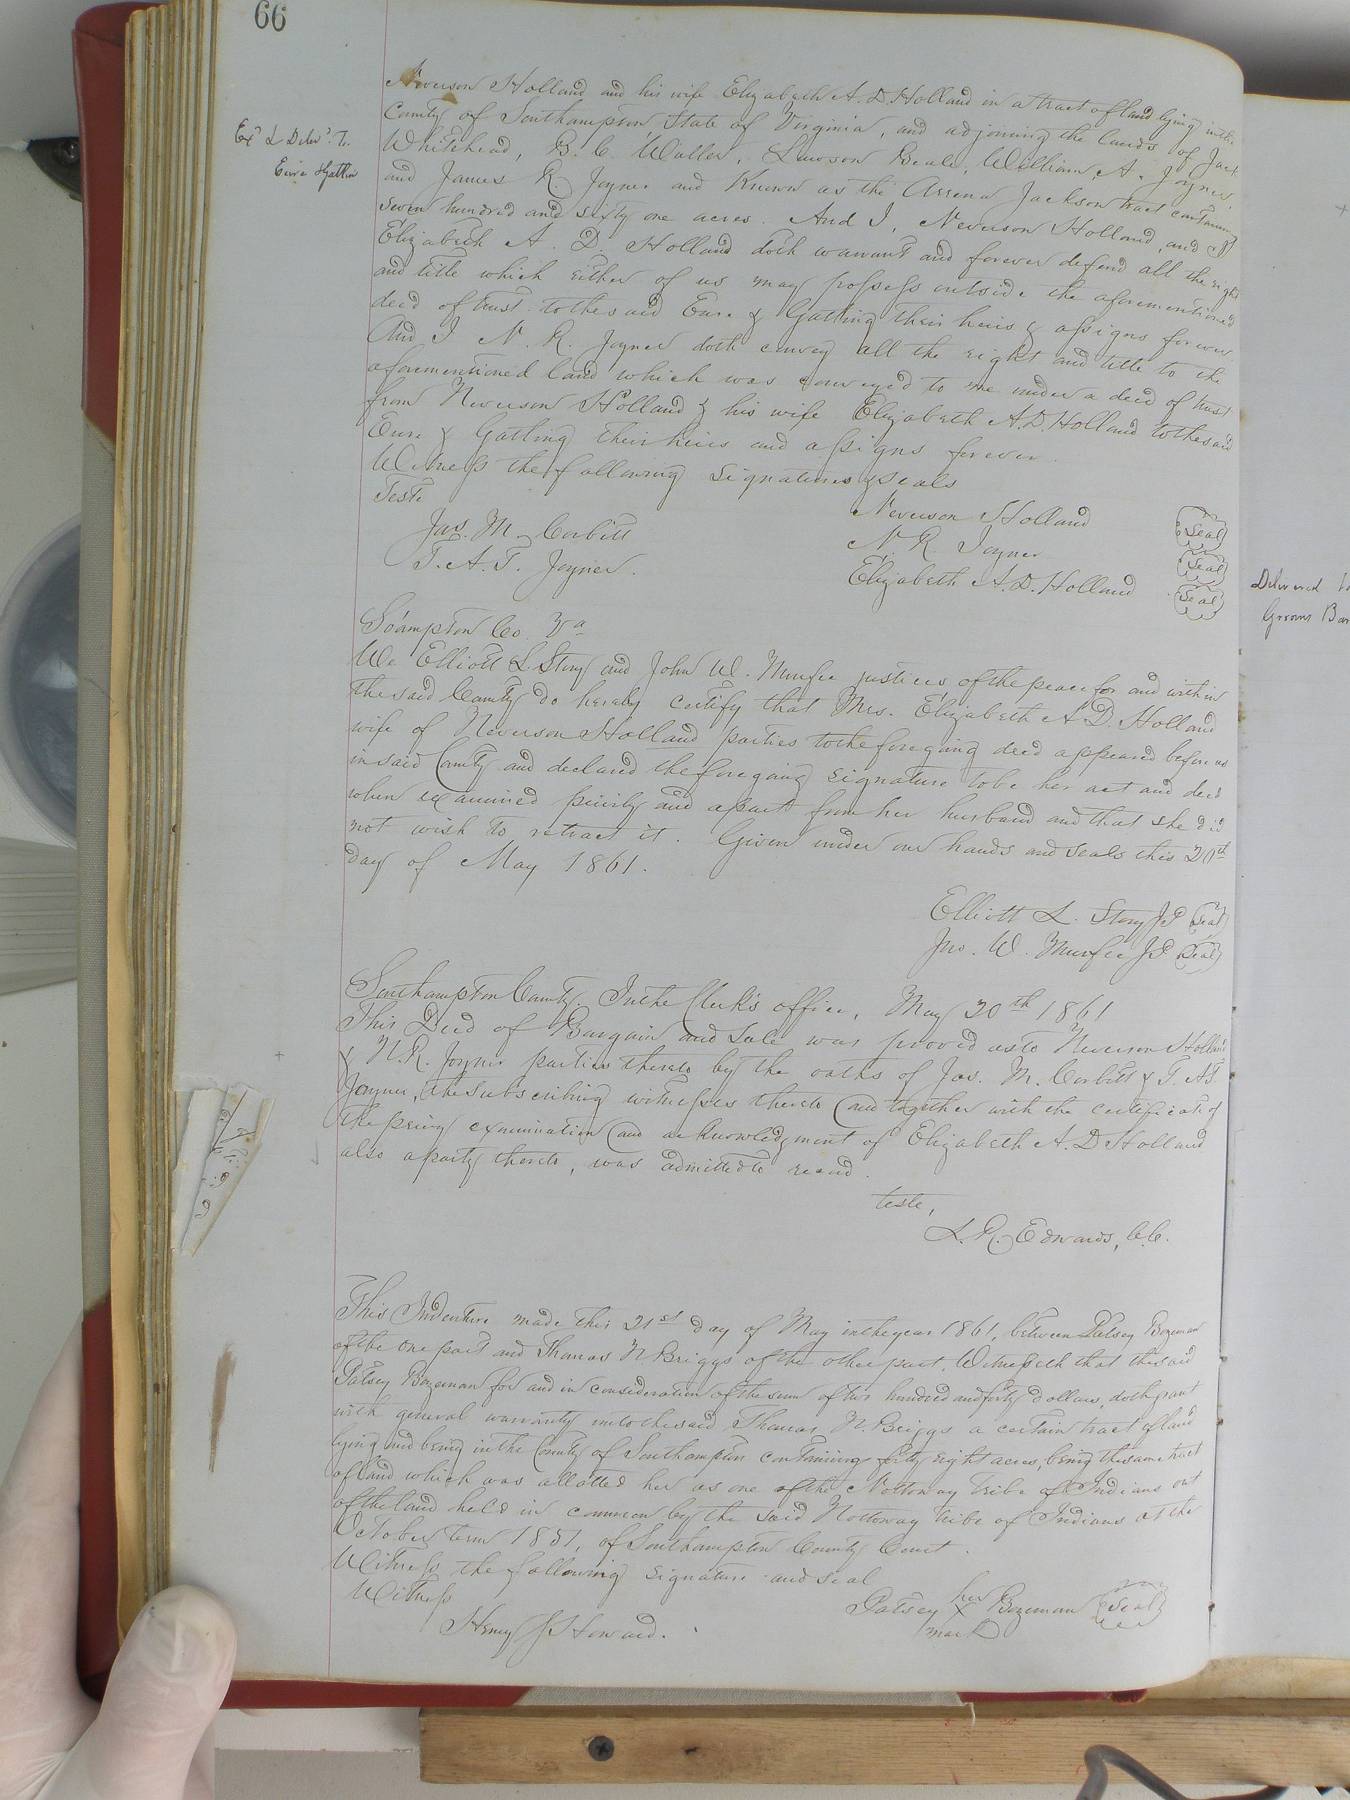 66
Neverson Holland and his wife Elizabeth A. D. Holland in a tract of land lying in the
County of Southampton State of Virginia, and adjoining the lands of Jack
Exd & Delvd. To
Eure & Gatlin
Whitehead, B. C. Waller, Lawson Beale, William A. Joyner,
and James R. Joyner and Known as the Jackson tract containing
seven hundred and sixty one acres. And I, Neverson Holland, and I
Elizabeth A. D. Holland doth warrant and forever defend all the right
and title which either of us may possess outside the aforementioned
deed of trust to the said Eure & Gatling their heirs & assigns forever.
And I N. R. Joyner doth convey all the right and title to the
aforementioned land which was conveyed to me under a deed of trust
from Neverson Holland & his wife Elizabeth A. D. Holland to the said
Eure & Gatling their heirs and assigns forever.
Witness the following signatures & seals
Teste
Neverson Holland Seal
Jas. M. Corbitt
N. R. Joyner Seal
T. A. T. Joyner.
Elizabeth A. D. Holland Seal
So'ampton Co. Va
We Elliott L. Story and John W. Murfee justices of the peace for and within
the said County do hereby certify that Mrs. Elizabeth A D. Holland
wife of Neverson Holland parties to the foregoing deed appeared before us
in said County and declared the foregoing signature to be her act and deed
when examined privily and apart from her husband and that she did
not wish to retract it. Given under our hands and seals this 20th
day of May 1861.
Elliott L. Story JP Seal
Jno. W. Murfee JP Seal
Southampton County. In the Clerk's office, May 20th 1861
This Deed of Bargain and Sale was proved as to Neverson Holland
& N. R. Joyner parties thereto by the oaths of Jas. M. Corbitt & T. A. T.
Joyner, the subscribing witnesses thereto and together with the certificate of
the privy examination and acknowledgment of Elizabeth A. D Holland
also a party thereto, was admitted to record.
teste,
L. R. Edwards, C.C.
This Indenture made this 21st day of May in the year 1861, between Patsey Bozeman
of the one part and Thomas N Briggs of the other part. Witnesseth that the said
Patsey Bozeman for and in consideration of the sum of two hundred and forty dollars, doth grant
with general warranty unto the said Thomas N. Briggs a certain tract of land
lying and being in the County of Southampton containing forty eight acres, being the same tract
of land which was allotted her as one of the Nottoway Tribe of Indians out
of the land held in common by the said Nottoway tribe of Indians at the
October term 1851, of Southampton County Court.
Witness the following signature and seal
Witness
Patsey her X mark Bozeman Seal
Henry J Howard.
Delivered to